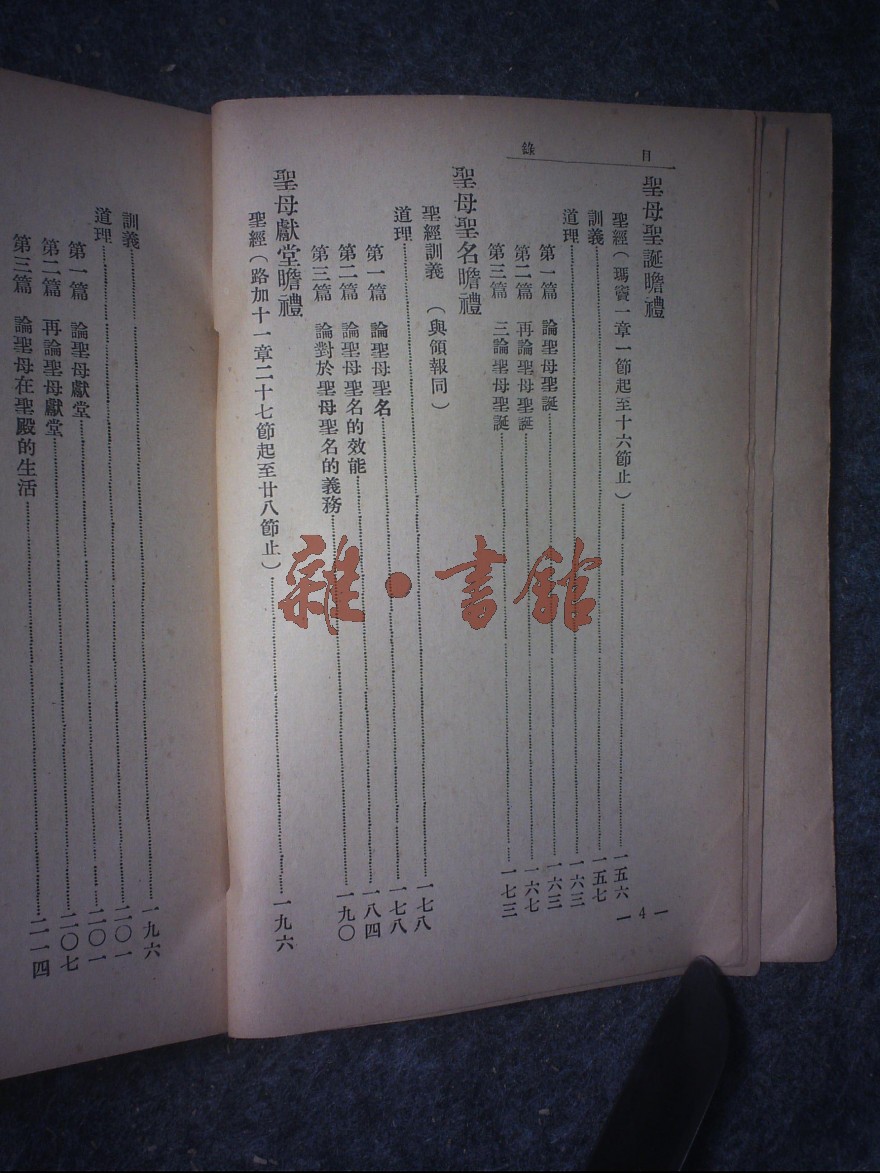 目錄
聖母聖誕瞻禮
聖經(瑪竇一章一節起至十六節止)……一五六
訓義……一五七
道理……一六三
第一篇 論聖母聖誕……一六三
第二篇 再論聖母聖誕……一六七
第三篇 三論聖母聖誕……一七三
聖母聖名瞻禮
聖經訓義 (與領報同)
道理……一七八
第一篇 論聖母聖名……一七八
第二篇 論聖母聖名的效能……一八四
第三篇 論對於聖母聖名的義務……一九〇
聖母獻堂瞻禮
聖經(路加十一章二十七節起至廿八節止)……一九六
— 4 —
訓義……一九六
道理……二〇一
第一篇 論聖母獻堂……二〇一
第二篇 再論聖母獻堂……二〇七
第三篇 論聖母在聖殿的生活……二一四
雜·書館